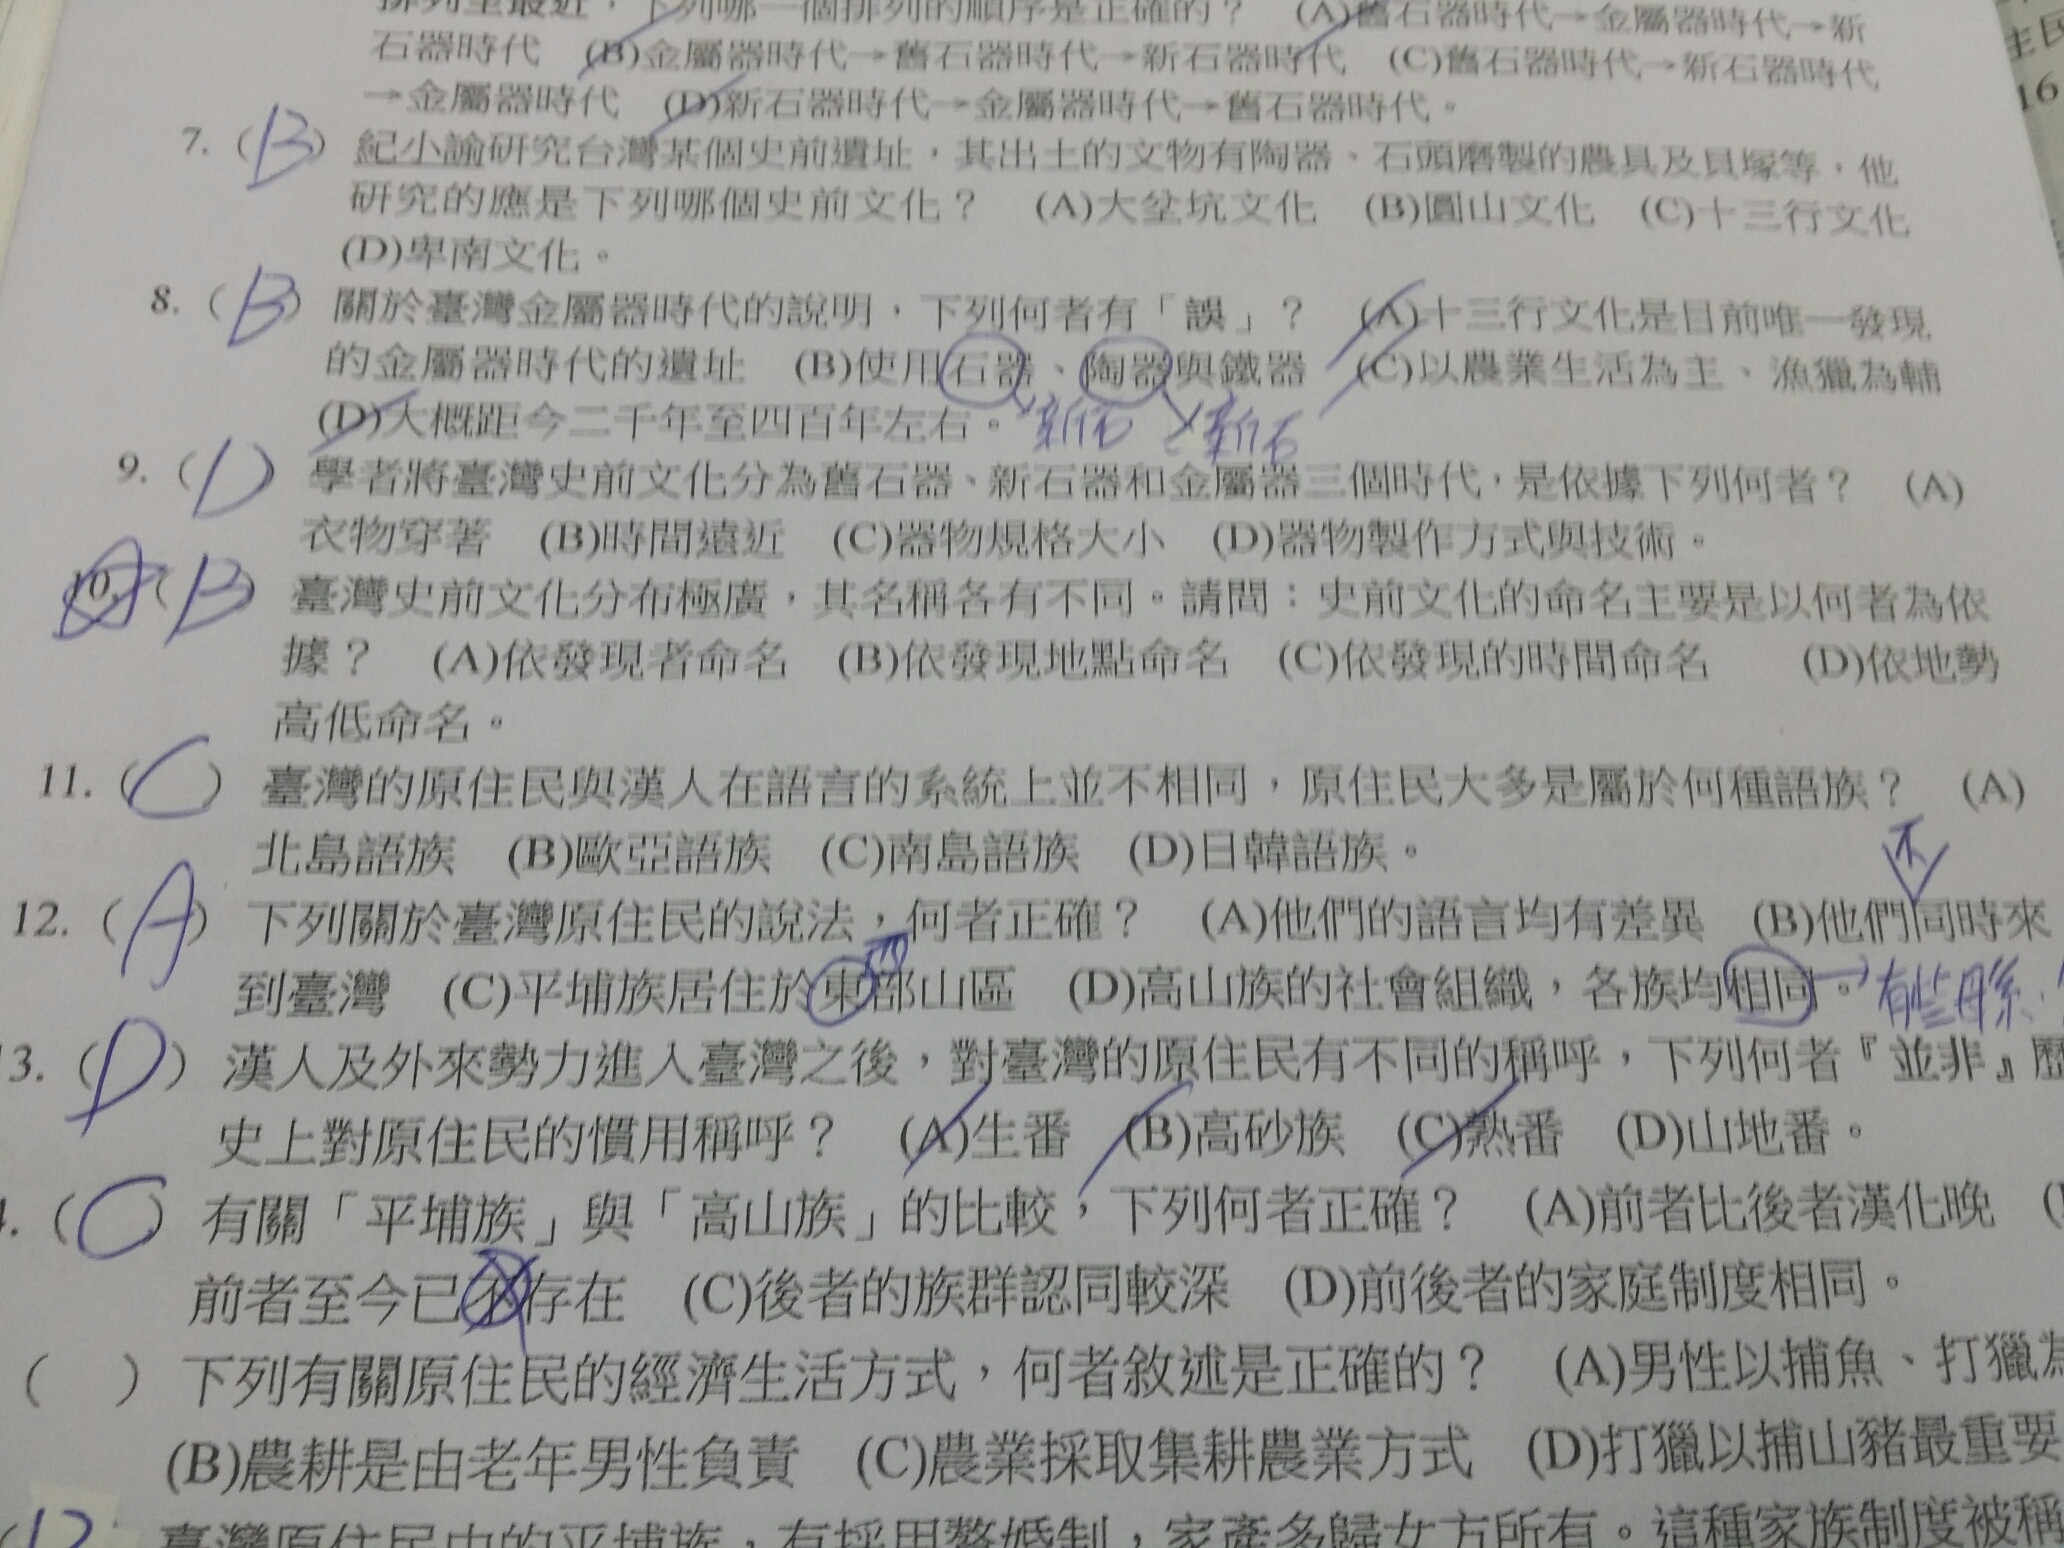 排列至最近,下列哪一個排列的順序是正確的? (A)舊石器時代→金屬器時代→新
石器時代 (B)金屬器時代→舊石器時代→新石器時代 (C)舊石器時代→新石器時代
→金屬器時代 (D)新石器時代→金屬器時代→舊石器時代。
7. (B) 紀小諭研究台灣某個史前遺址,其出土的文物有陶器、石頭磨製的農具及貝塚等,他
研究的應是下列哪個史前文化? (A)大坌坑文化 (B)圓山文化 (C)十三行文化
(D)卑南文化。
8. (B) 關於臺灣金屬器時代的說明,下列何者有「誤」? (A)十三行文化是目前唯一發現
的金屬器時代的遺址 (B)使用石器、陶器與鐵器 (C)以農業生活為主、漁獵為輔
(D)大概距今二千年至四百年左右。 新石 新石
9. (D) 學者將臺灣史前文化分為舊石器、新石器和金屬器三個時代,是依據下列何者? (A)
衣物穿著 (B)時間遠近 (C)器物規格大小 (D)器物製作方式與技術。
10. (B) 臺灣史前文化分布極廣,其名稱各有不同。請問:史前文化的命名主要是以何者為依
據? (A)依發現者命名 (B)依發現地點命名 (C)依發現的時間命名 (D)依地勢
高低命名。
11. (C) 臺灣的原住民與漢人在語言的系統上並不相同,原住民大多是屬於何種語族? (A)
北島語族 (B)歐亞語族 (C)南島語族 (D)日韓語族。
不
12. (A) 下列關於臺灣原住民的說法,何者正確? (A)他們的語言均有差異 (B)他們同時來
到臺灣 (C)平埔族居住於東部山區 (D)高山族的社會組織,各族均相同。→有些母系、
3. (D) 漢人及外來勢力進入臺灣之後,對臺灣的原住民有不同的稱呼,下列何者『並非』歷
史上對原住民的慣用稱呼? (A)生番 (B)高砂族 (C)熟番 (D)山地番。
(C) 有關「平埔族」與「高山族」的比較,下列何者正確? (A)前者比後者漢化晚
前者至今已不存在 (C)後者的族群認同較深 (D)前後者的家庭制度相同。
( ) 下列有關原住民的經濟生活方式,何者敘述是正確的? (A)男性以捕魚、打獵為
(B)農耕是由老年男性負責 (C)農業採取集耕農業方式 (D)打獵以捕山豬最重要
臺灣原住民中的平埔族,有採用贅婚制,家產多歸女方所有。這種家族制度被稱
主民
16